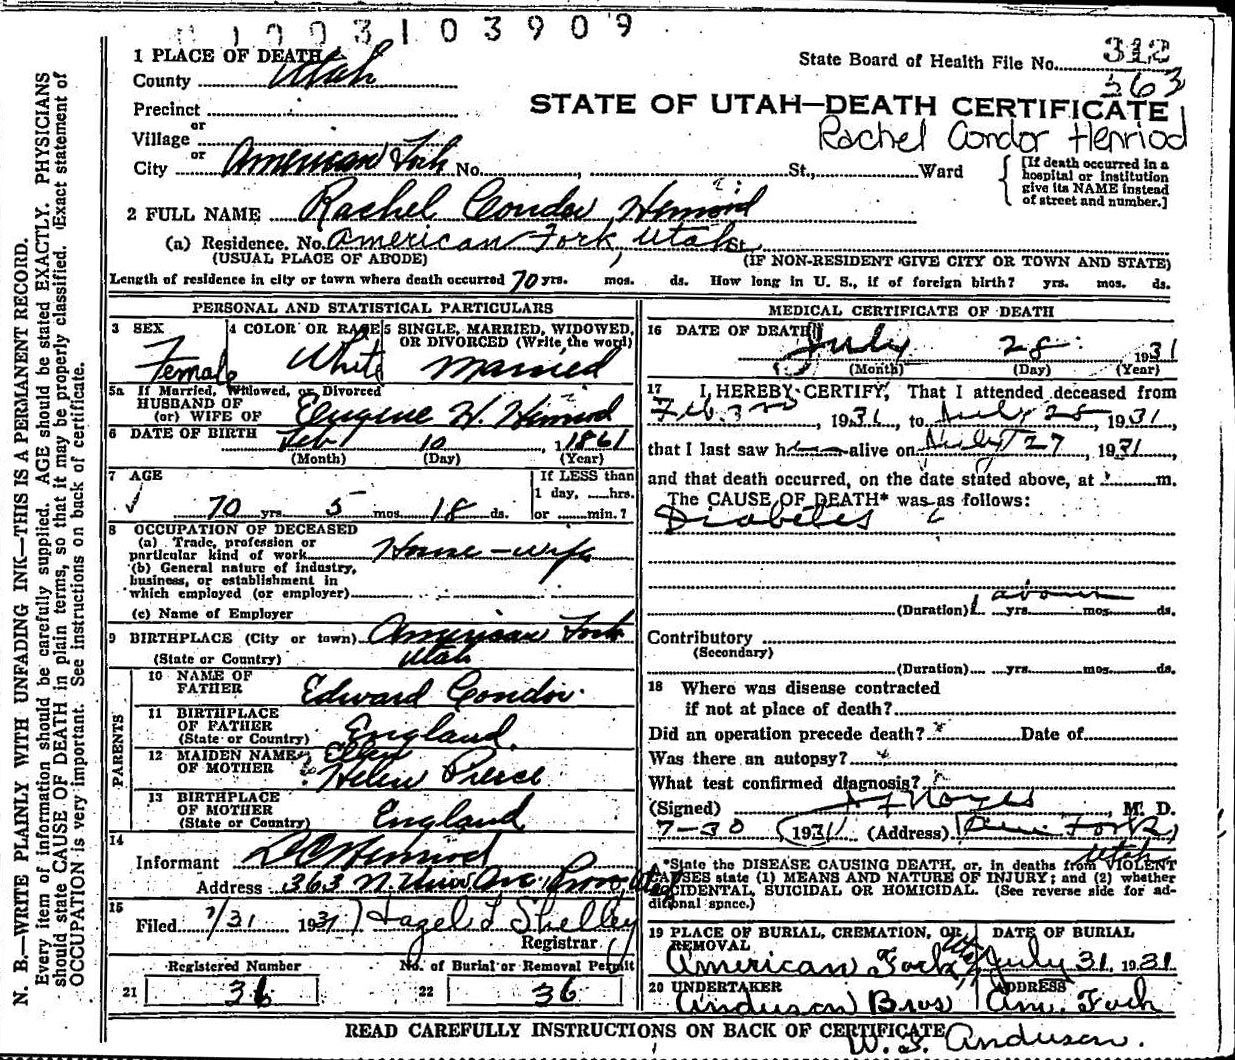 1003103909
1 PLACE OF DEATH
County Utah
State Board of Health File No. 312
363
Precinct
or
Village
STATE OF UTAH—DEATH CERTIFICATE
Rachel Condor Henriod
or
City American Fork No. , St., Ward
[If death occurred in a hospital or institution give its NAME instead of street and number.]
2 FULL NAME Rachel Condor Henriod
(a) Residence. No. American Fork, Utah St.
(USUAL PLACE OF ABODE) (IF NON-RESIDENT GIVE CITY OR TOWN AND STATE)
Length of residence in city or town where death occurred 70 yrs. mos. ds. How long in U. S., if of foreign birth? yrs. mos. ds.
PERSONAL AND STATISTICAL PARTICULARS
3 SEX
Female
4 COLOR OR RACE
White
5 SINGLE, MARRIED, WIDOWED, OR DIVORCED (Write the word)
Married
5a If Married, Widowed, or Divorced
HUSBAND OF
(or) WIFE OF Eugene H. Henriod
6 DATE OF BIRTH Feb 10, 1861
(Month) (Day) (Year)
7 AGE
70 yrs. 5 mos. 18 ds.
If LESS than
1 day, hrs.
or min.?
8 OCCUPATION OF DECEASED
(a) Trade, profession or
particular kind of work House-wife
(b) General nature of industry,
business, or establishment in
which employed (or employer)
(c) Name of Employer
9 BIRTHPLACE (City or town) American Fork
(State or Country) Utah
PARENTS
10 NAME OF
FATHER Edward Condor
11 BIRTHPLACE
OF FATHER
(State or Country) England
12 MAIDEN NAME
OF MOTHER Ellen
Helen Pierce
13 BIRTHPLACE
OF MOTHER
(State or Country) England
14
Informant Henriod
Address 363 N. Univ. Ave. Provo, Utah
15
Filed 7/31 1931 Hazel L Shelley
Registrar
Registered Number No. of Burial or Removal Permit
21 36 22 36
MEDICAL CERTIFICATE OF DEATH
16 DATE OF DEATH
July 28 1931
(Month) (Day) (Year)
17 I HEREBY CERTIFY, That I attended deceased from
Feb. 3rd, 1931, to July 28, 1931
that I last saw her alive on July 27, 1931,
and that death occurred, on the date stated above, at m.
The CAUSE OF DEATH* was as follows:
Diabetes
(Duration) yrs. mos. ds.
Contributory
(Secondary)
(Duration) yrs. mos. ds.
18 Where was disease contracted
if not at place of death?
Did an operation precede death? Date of
Was there an autopsy?
What test confirmed diagnosis?
(Signed) Noyes, M. D.
7-30 1931 (Address) Am. Fork, Utah
*State the DISEASE CAUSING DEATH, or, in deaths from VIOLENT
CAUSES state (1) MEANS AND NATURE OF INJURY; and (2) whether
ACCIDENTAL, SUICIDAL OR HOMICIDAL. (See reverse side for ad-
ditional space.)
19 PLACE OF BURIAL, CREMATION, OR
REMOVAL
American Fork, Utah
DATE OF BURIAL
July 31 1931
20 UNDERTAKER
Anderson Bros
ADDRESS
Am. Fork
READ CAREFULLY INSTRUCTIONS ON BACK OF CERTIFICATE
Anderson.
N. B.—WRITE PLAINLY WITH UNFADING INK—THIS IS A PERMANENT RECORD.
Every item of information should be carefully supplied. AGE should be stated EXACTLY. PHYSICIANS
should state CAUSE OF DEATH in plain terms, so that it may be properly classified. Exact statement of
OCCUPATION is very important. See instructions on back of certificate.